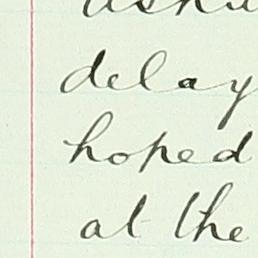 delay
hoped
at the